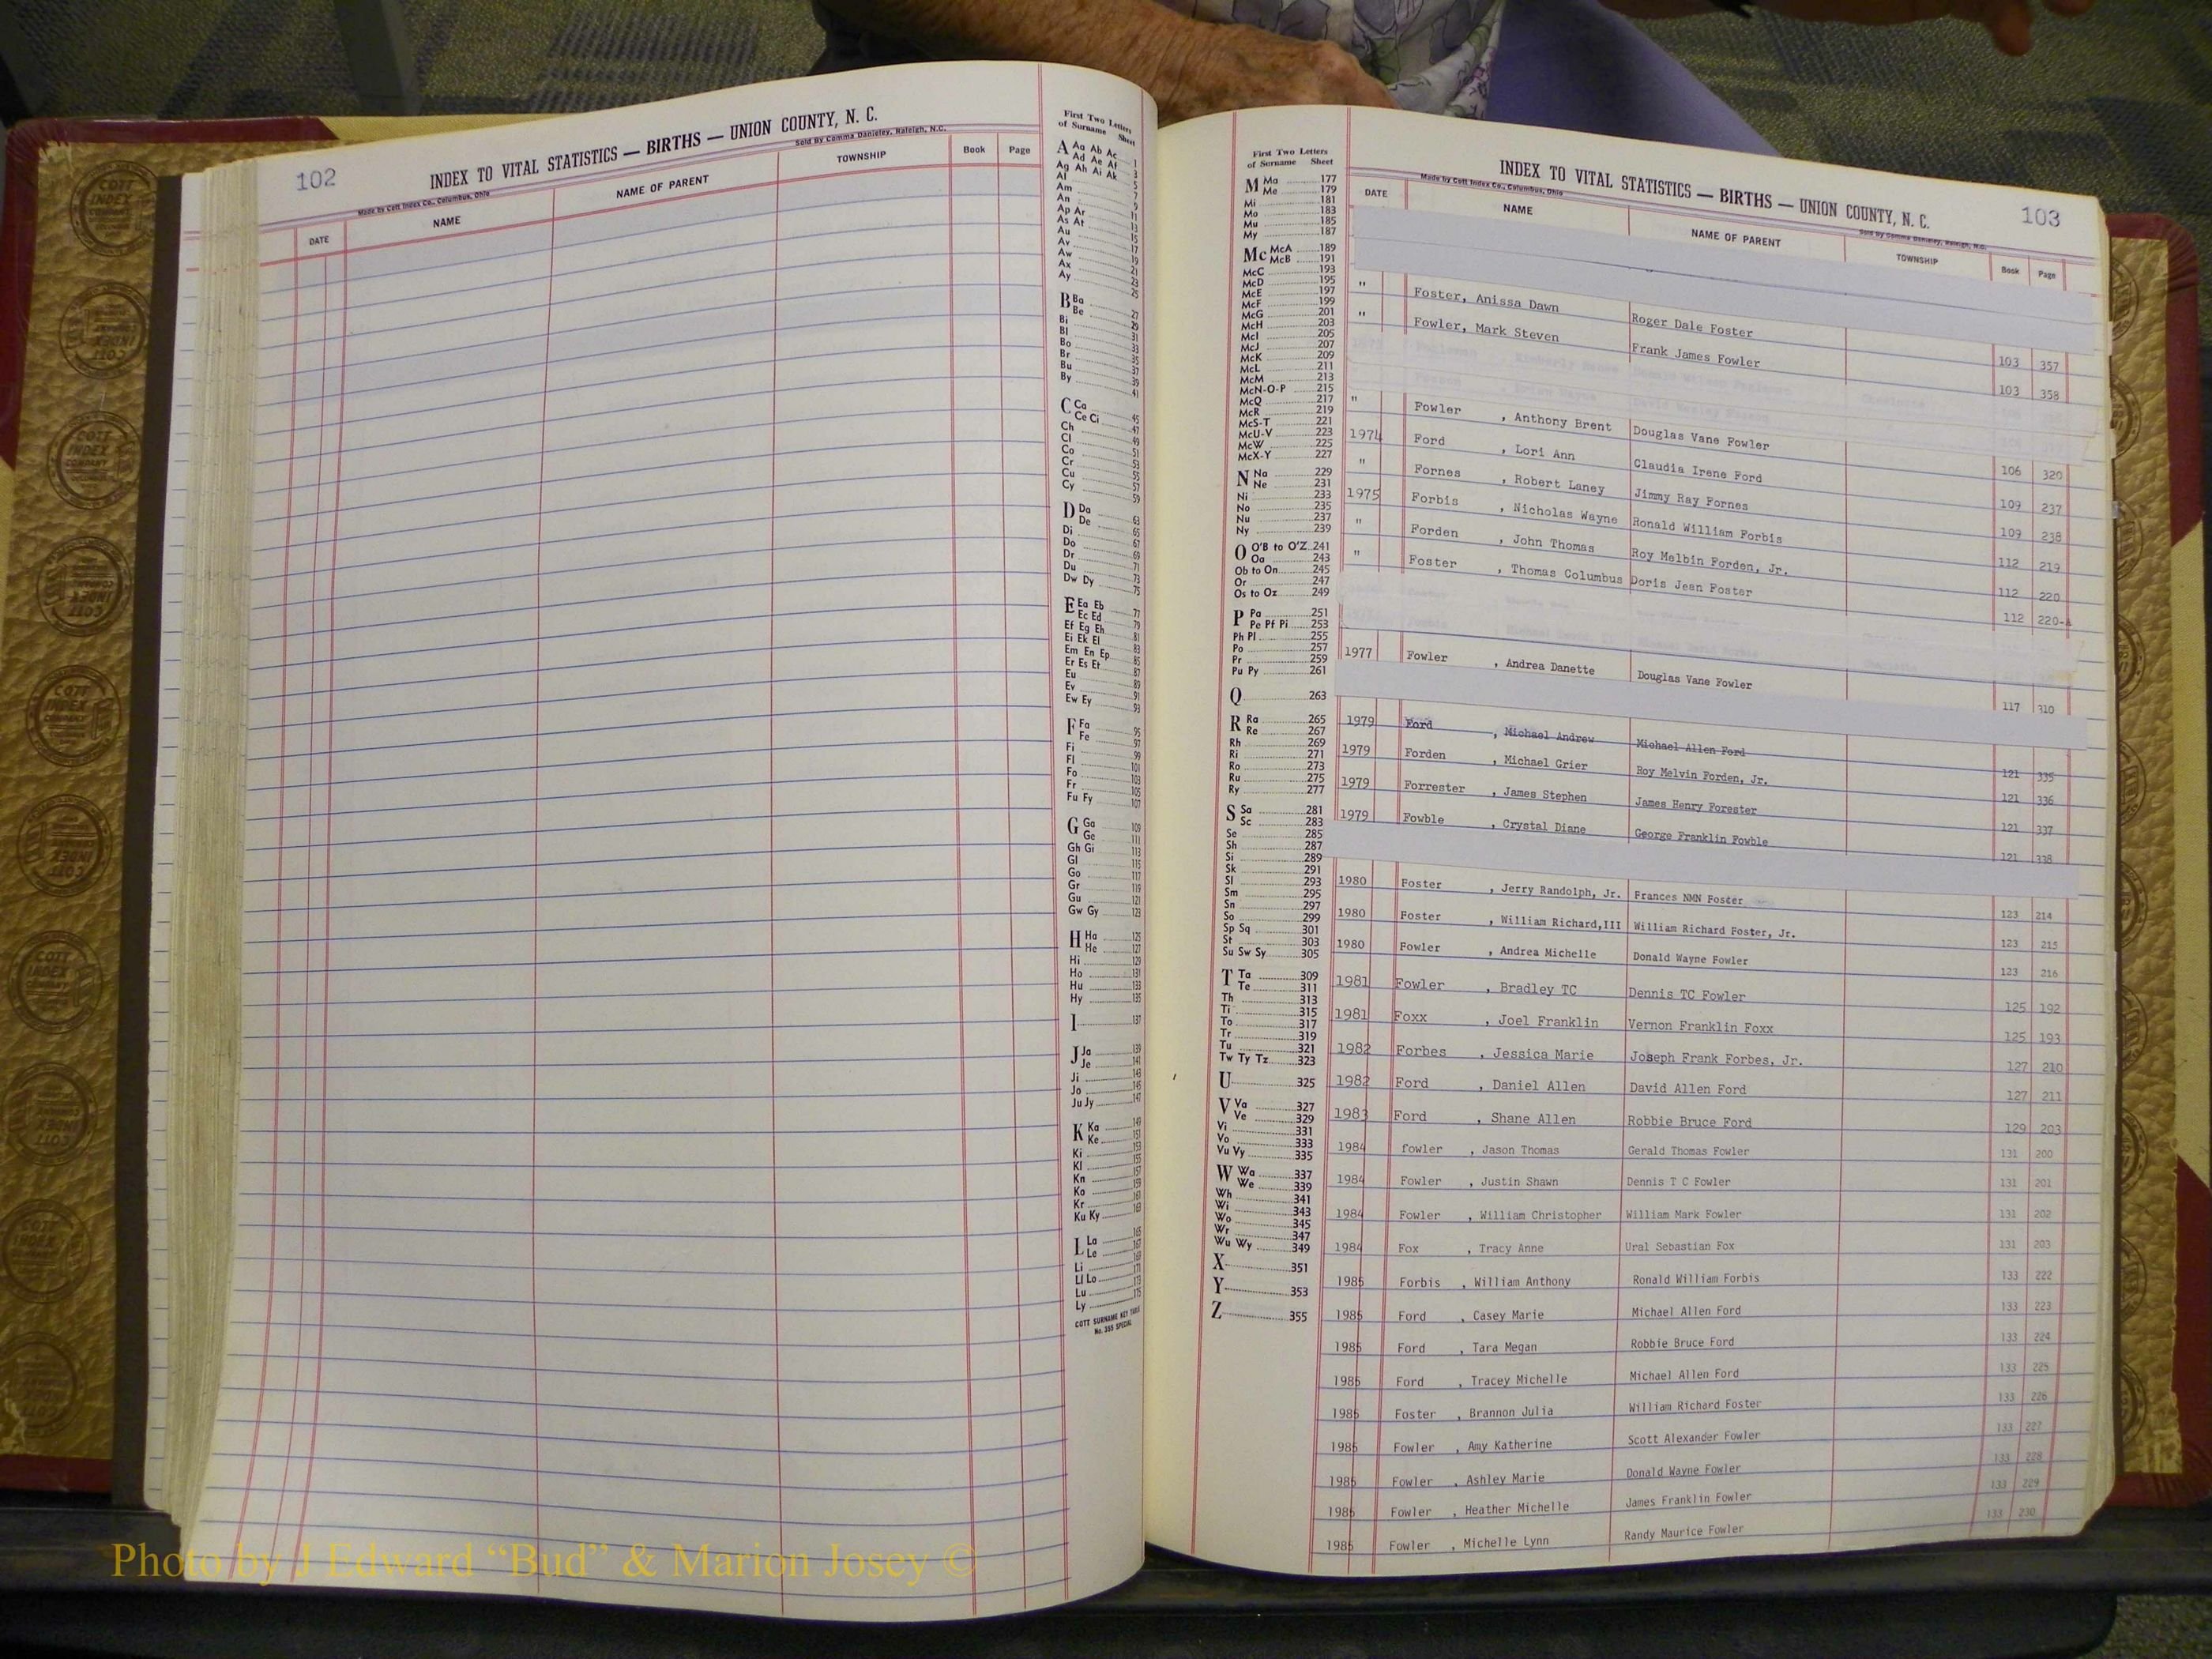 102
INDEX TO VITAL STATISTICS — BIRTHS — UNION COUNTY, N. C.
Made by Cott Index Co., Columbus, Ohio
Sold By Comma Danieley, Raleigh, N.C.
DATE NAME NAME OF PARENT TOWNSHIP Book Page
First Two Letters
of Surname Sheet
A Aa Ab Ac 1
Ad Ae Af 3
Ag Ah Ai Ak 5
Al 7
Am 9
An 11
Ap Ar 13
As At 15
Au 17
Av 19
Aw 21
Ax 23
Ay 25
B Ba 27
Be 29
Bi 31
Bl 33
Bo 35
Br 37
Bu 39
By 41
C Ca 45
Ce Ci 47
Ch 49
Cl 51
Co 53
Cr 55
Cu 57
Cy 59
D Da 63
De 65
Di 67
Do 69
Dr 71
Du 73
Dw Dy 75
E Ea Eb 77
Ec Ed 79
Ef Eg Eh 81
Ei Ek El 83
Em En Ep 85
Er Es Et 87
Eu 89
Ev 91
Ew Ey 93
F Fa 95
Fe 97
Fi 99
Fl 101
Fo 103
Fr 105
Fu Fy 107
G Ga 109
Ge 111
Gh Gi 113
Gl 115
Go 117
Gr 119
Gu 121
Gw Gy 123
H Ha 125
He 127
Hi 129
Ho 131
Hu 133
Hy 135
I 137
J Ja 139
Je 141
Ji 143
Jo 145
Ju Jy 147
K Ka 149
Ke 151
Ki 153
Kl 155
Kn 157
Ko 159
Kr 161
Ku Ky 163
L La 165
Le 167
Li 169
Ll Lo 171
Lu 173
Ly 175
COTT SURNAME KEY TABLE
No. 355 SPECIAL
First Two Letters
of Surname Sheet
M Ma 177
Me 179
Mi 181
Mo 183
Mu 185
My 187
Mc McA 189
McB 191
McC 193
McD 195
McE 197
McF 199
McG 201
McH 203
McI 205
McJ 207
McK 209
McL 211
McM 213
McN-O-P 215
McQ 217
McR 219
McS-T 221
McU-V 223
McW 225
McX-Y 227
N Na 229
Ne 231
Ni 233
No 235
Nu 237
Ny 239
O O'B to O'Z 241
Oa 243
Ob to On 245
Or 247
Os to Oz 249
P Pa 251
Pe Pf Pi 253
Ph Pl 255
Po 257
Pr 259
Pu Py 261
Q 263
R Ra 265
Re 267
Rh 269
Ri 271
Ro 273
Ru 275
Ry 277
S Sa 281
Sc 283
Se 285
Sh 287
Si 289
Sk 291
Sl 293
Sm 295
Sn 297
So 299
Sp Sq 301
St 303
Su Sw Sy 305
T Ta 309
Te 311
Th 313
Ti 315
To 317
Tr 319
Tu 321
Tw Ty Tz 323
U 325
V Va 327
Ve 329
Vi 331
Vo 333
Vu Vy 335
W Wa 337
We 339
Wh 341
Wi 343
Wo 345
Wr 347
Wu Wy 349
X 351
Y 353
Z 355
INDEX TO VITAL STATISTICS — BIRTHS — UNION COUNTY, N. C.
103
Made by Cott Index Co., Columbus, Ohio
Sold By Comma Danieley, Raleigh, N.C.
DATE NAME NAME OF PARENT TOWNSHIP Book Page
" Foster, Anissa Dawn Roger Dale Foster 103 357
" Fowler, Mark Steven Frank James Fowler 103 358
" Fowler , Anthony Brent Douglas Vane Fowler 106 320
1974 Ford , Lori Ann Claudia Irene Ford 109 237
" Fornes , Robert Laney Jimmy Ray Fornes 109 238
1975 Forbis , Nicholas Wayne Ronald William Forbis 112 219
" Forden , John Thomas Roy Melbin Forden, Jr. 112 220
" Foster , Thomas Columbus Doris Jean Foster 112 220-A
1977 Fowler , Andrea Danette Douglas Vane Fowler 117 310
1979 Ford , Michael Andrew Michael Allen Ford 121 335
1979 Forden , Michael Grier Roy Melvin Forden, Jr. 121 336
1979 Forrester , James Stephen James Henry Forester 121 337
1979 Fowble , Crystal Diane George Franklin Fowble 121 338
1980 Foster , Jerry Randolph, Jr. Frances NMN Foster 123 214
1980 Foster , William Richard,III William Richard Foster, Jr. 123 215
1980 Fowler , Andrea Michelle Donald Wayne Fowler 123 216
1981 Fowler , Bradley TC Dennis TC Fowler 125 192
1981 Foxx , Joel Franklin Vernon Franklin Foxx 125 193
1982 Forbes , Jessica Marie Joseph Frank Forbes, Jr. 127 210
1982 Ford , Daniel Allen David Allen Ford 127 211
1983 Ford , Shane Allen Robbie Bruce Ford 129 203
1984 fowler , Jason Thomas Gerald Thomas Fowler 131 200
1984 Fowler , Justin Shawn Dennis T C Fowler 131 201
1984 Fowler , William Christopher William Mark Fowler 131 202
1984 Fox , Tracy Anne Ural Sebastian Fox 131 203
1985 Forbis , William Anthony Ronald William Forbis 133 222
1985 Ford , Casey Marie Michael Allen Ford 133 223
1985 Ford , Tara Megan Robbie Bruce Ford 133 224
1985 Ford , Tracey Michelle Michael Allen Ford 133 225
1985 Foster , Brannon Julia William Richard Foster 133 226
1985 Fowler , Amy Katherine Scott Alexander Fowler 133 227
1985 Fowler , Ashley Marie Donald Wayne Fowler 133 228
1985 Fowler , Heather Michelle James Franklin Fowler 133 229
1985 Fowler , Michelle Lynn Randy Maurice Fowler 133 230
Photo by J Edward “Bud” & Marion Josey ©